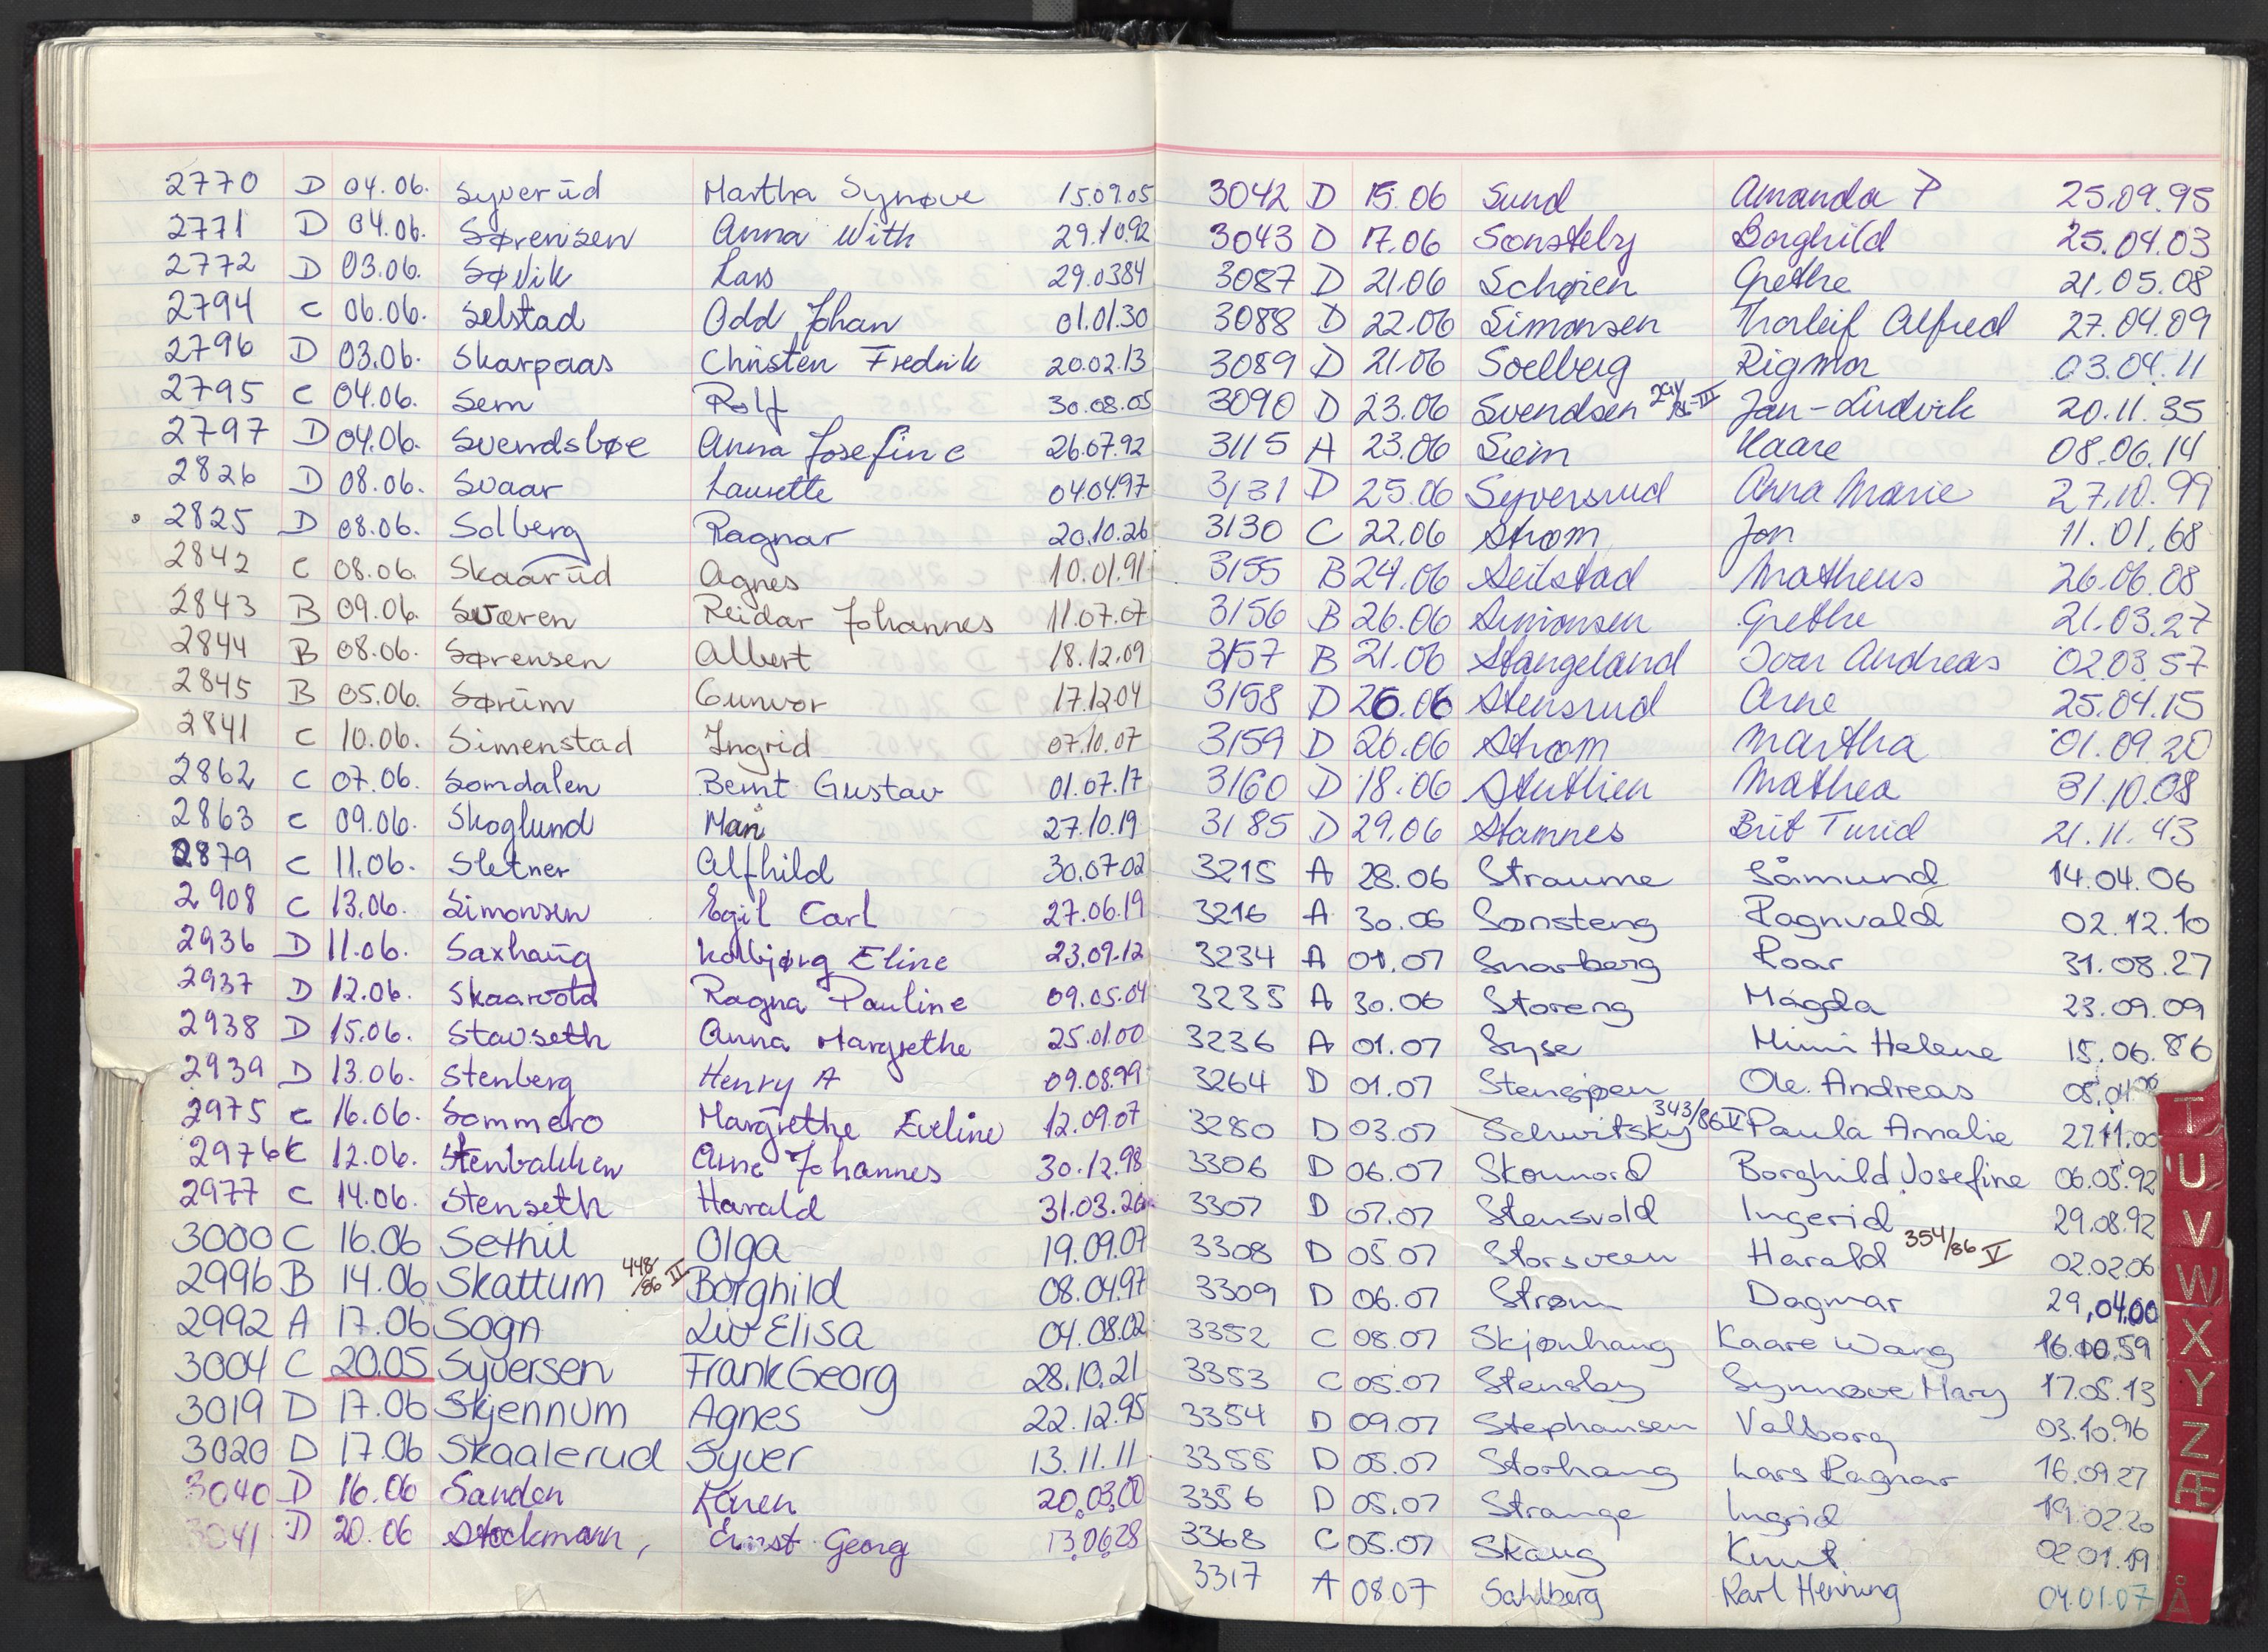 2770 D 04.06. Syverud Martha Synøve 15.09.05
2771 D 04.06. Sørensen Anna With 29.10.92
2772 D 03.06. Søvik Lars 29.03.84
2794 C 06.06. Selstad Odd Johan 01.01.30
2796 D 03.06. Skarpaas Christen Fredrik 20.02.13
2795 C 04.06. Sem Rolf 30.08.05
2797 D 04.06. Svendsbøe Anna Josefine 26.07.92
2826 D 08.06. Svaar Laurette 04.04.97
2825 D 08.06. Solberg Ragnar 20.10.26
2842 C 08.06. Skaarud Agnes 10.01.91
2843 B 09.06. Sværen Reidar Johannes 11.07.07
2844 B 08.06. Sørensen Albert 18.12.09
2845 B 05.06. Sørum Gunvor 17.12.04
2841 C 10.06. Simenstad Ingrid 07.10.07
2862 C 07.06. Somdalen Bernt Gustav 01.07.17
2863 C 09.06. Skoglund Mari 27.10.19
2879 C 11.06. Sletner Alfhild 30.07.02
2908 C 13.06. Simonsen Egil Carl 27.06.19
2936 D 11.06. Saxhaug Kolbjørg Eline 23.09.12
2937 D 12.06. Skaarvold Ragna Pauline 09.05.04
2938 D 15.06. Stavseth Anna Margrethe 25.01.00
2939 D 13.06. Stenberg Henry A 09.08.99
2975 C 16.06. Sommero Margrethe Eveline 12.09.07
2976 C 12.06. Stenbakken Arne Johannes 30.12.98
2977 C 14.06. Stenseth Harald 31.03.26
3000 C 16.06 Sethil Olga 19.09.07
2996 B 14.06 Skattum 448/86 II Borghild 08.04.97
2992 A 17.06 Sogn Liv Elisa 04.08.02
3004 C 20.05 Syversen Frank Georg 28.10.21
3019 D 17.06 Skjennum Agnes 22.12.95
3020 D 17.06 Skaalerud Syver 13.11.11
3040 D 16.06 Sanden Karen 20.03.00
3041 D 20.06 Stockmann, Ernst Georg 13.06.28
3042 D 15.06 Sund Amanda P 25.09.95
3043 D 17.06 Sønsteby Borghild 25.04.03
3087 D 21.06 Schøien Grethe 21.05.08
3088 D 22.06 Simonsen Thorleif Alfred 27.04.09
3089 D 21.06 Soelberg Rigmor 03.04.11
3090 D 23.06 Svendsen Jan-Ludvik 20.11.35
3115 A 23.06 Siem Kaare 08.06.14
3131 D 25.06 Syversrud Anna Marie 27.10.99
3130 C 22.06 Strøm Jon 11.01.68
3155 B 24.06 Seilstad Matheus 26.06.08
3156 B 26.06 Simonsen Grethe 21.03.27
3157 B 21.06 Stangeland Ivar Andreas 02.03.57
3158 D 26.06 Stensrud Arne 25.04.15
3159 D 26.06 Strøm Martha 01.09.20
3160 D 18.06 Stuthien Mathea 31.10.08
3185 D 29.06 Stamnes Brit Turid 21.11.43
3215 A 28.06 Straume Såmund 14.04.06
3216 A 30.06 Sønsteng Ragnvald 02.12.10
3234 A 01.07 Snarberg Roar 31.08.27
3235 A 30.06 Storeng Magda 23.09.09
3236 A 01.07 Syse Mimi Helene 15.06.86
3264 D 01.07 Ole Andreas
3280 D 03.07 Schwitsky 343/86 V Paula Amalie 27.11.00
3306 D 06.07 Skounord Borghild Josefine 06.05.92
3307 D 07.07 Stensvold Ingerid 29.08.92
3308 D 05.07 Storsveen Harald 354/86 V 02.02.06
3309 D 06.07 Strøm Dagmar 29.04.00
3352 C 08.07 Skjønhaug Kaare Wang 16.10.59
3353 C 05.07 Stensby Synnøve Mary 17.05.13
3354 D 09.07 Stephansen Valborg 03.10.96
3355 D 05.07 Storhaug Lars Ragnar 16.09.27
3356 D 05.07 Strange Ingrid 19.02.20
3368 C 05.07 Skaug Knut 02.01.19
3317 A 08.07 Sahlberg Karl Henning 04.01.07
T
U
V
W
X
Y
Z
Æ
Å